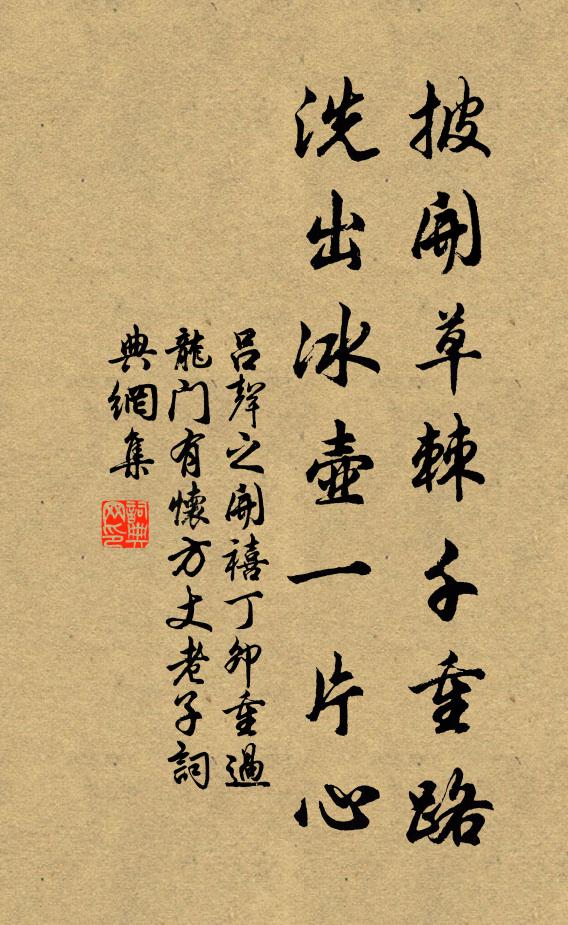 披開草棘千重路
洗出冰壺一片心
呂聲之開禧丁卯重過
龍门有懷方丈老子詞
典網集
詞典网印